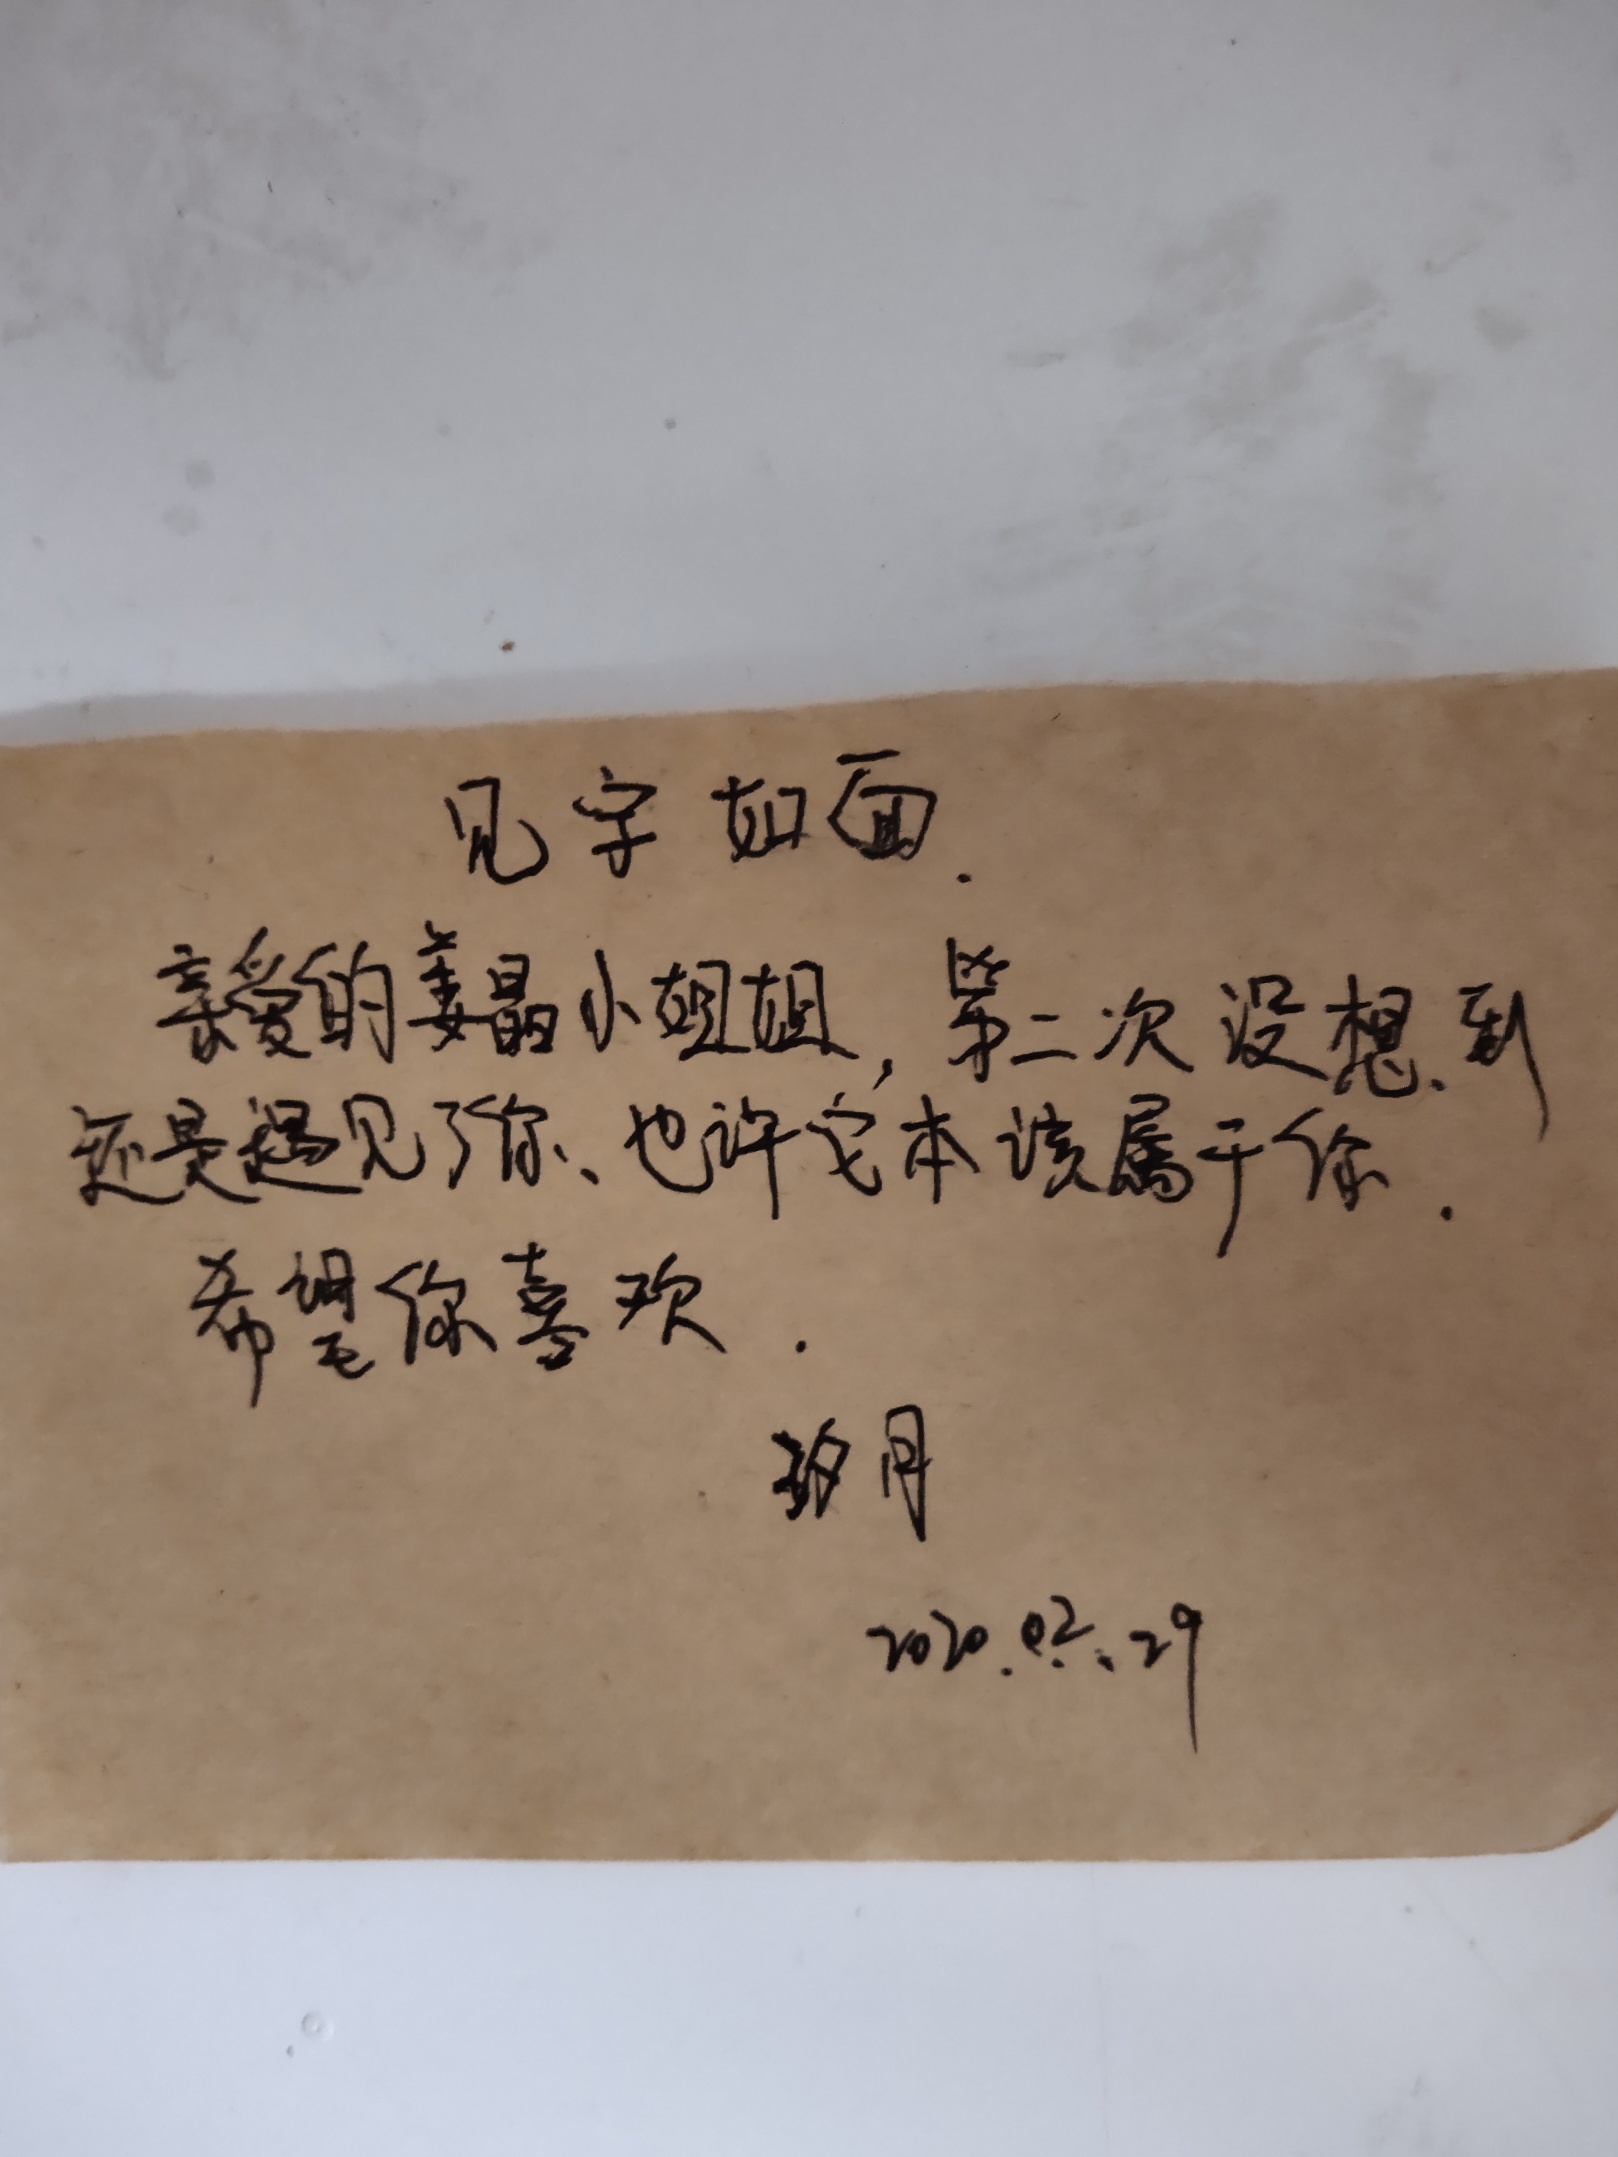 见字如面.
亲爱的姜晶小姐姐,第二次没想到
还是遇见了你、也许它本该属于你.
希望你喜欢.
月
2020.02.29